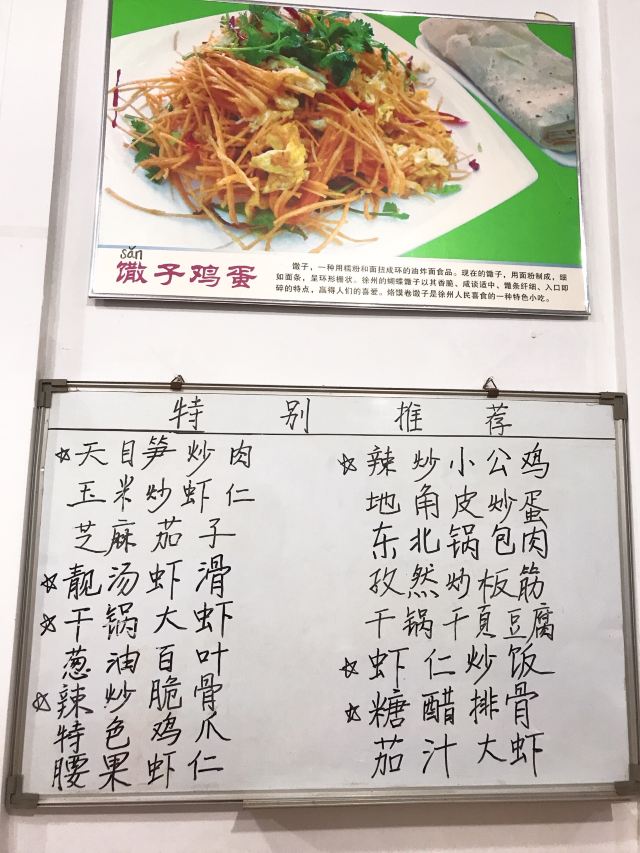 sǎn
馓子鸡蛋
馓子，一种用糯粉和面扭成环的油炸面食品。现在的馓子，用面粉制成，细
如面条，呈环形栅状。徐州的蝴蝶馓子以其香脆、咸谈适中、馓条纤细、入口即
碎的特点，赢得人们的喜爱。烙馍卷馓子是徐州人民喜食的一种特色小吃。
特别推荐
☆天目笋炒肉
玉米炒虾仁
芝麻茄子
☆靓汤虾滑
☆干锅大虾
葱油百叶
☆辣炒脆骨
特色鸡爪
腰果虾仁
☆辣炒小公鸡
地角皮炒蛋
东北锅包肉
孜然炒板筋
干锅千頁豆腐
☆虾仁炒饭
☆糖醋排骨
茄汁大虾